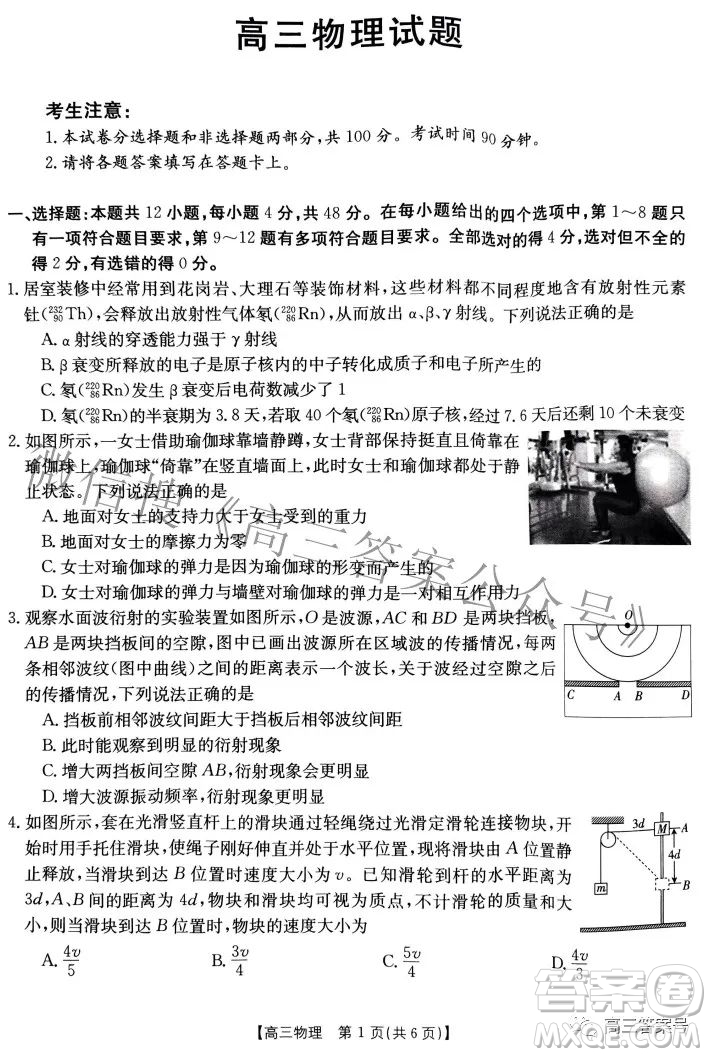 高三物理试题
考生注意:
1.本试卷分选择题和非选择题两部分,共 100 分。考试时间 90 分钟。
2.请将各题答案填写在答题卡上。
一、选择题:本题共 12 小题,每小题 4 分,共 48 分。在每小题给出的四个选项中,第 1~8 题只
有一项符合题目要求,第 9~12 题有多项符合题目要求。全部选对的得 4 分,选对但不全的
得 2 分,有选错的得 0 分。
1.居室装修中经常用到花岗岩、大理石等装饰材料,这些材料都不同程度地含有放射性元素
钍(²³²₉₀Th),会释放出放射性气体氡(²²⁰₈₆Rn),放出 α、β、γ 射线。下列说法正确的是
A. α 射线的穿透能力强于 γ 射线
B. β 衰变所释放的电子是原子核内的中子转化成质子和电子所产生的
C. 氡(²²⁰₈₆Rn)发生 β 衰变后电荷数减少了 1
D. 氡(²²⁰₈₆Rn)的半衰期为 3.8 天,若取 40 个氡(²²⁰₈₆Rn)原子核,经过 7.6 天后还剩 10 个未衰变
2.如图所示,一女士借助瑜伽球靠墙静蹲,女士背部保持挺直且倚靠在
瑜伽球上,瑜伽球“倚靠”在竖直墙面上,此时女士和瑜伽球都处于静
止状态。下列说法正确的是
A. 地面对女士的支持力大于女士受到的重力
B. 地面对女士的摩擦力为零
C. 女士对瑜伽球的弹力是因为瑜伽球的形变而产生的
D. 女士对瑜伽球的弹力与墙壁对瑜伽球的弹力大小相等
3.观察水面波衍射的实验装置如图所示,O 是波源,AC 和 BD 是两块挡板,
AB 是两块挡板间的空隙,图中已画出波源所在区域波的传播情况,每两
条相邻波纹(图中曲线)之间的距离表示一个波长,关于波经过空隙之后
的传播情况,下列说法正确的是
O
C A B D
A. 挡板前相邻波纹间距大于挡板后相邻波纹间距
B. 此时能观察到明显的衍射现象
C. 增大两挡板间空隙 AB,衍射现象会更明显
D. 增大波源振动频率,衍射现象会更明显
4.如图所示,套在光滑竖直杆上的滑块通过轻绳绕过光滑定滑轮连接物块,开
始时用手托住滑块,使绳子刚好伸直并处于水平位置,现将滑块由 A 位置静
止释放,当滑块到达 B 位置时速度大小为 v。已知滑轮到杆的距离为
3d,A、B 间的距离为 4d,物块和滑块均可视为质点,不计滑轮的大小和质
量,则当滑块到达 B 位置时,物块的速度大小为
3d M A
4d
m B
A. 4v/5 B. 3v/4 C. 5v/4 D. 4v/3
【高三物理 第 1 页(共 6 页)】
微信搜《高三答案公众号》
答案卷
高三答案号